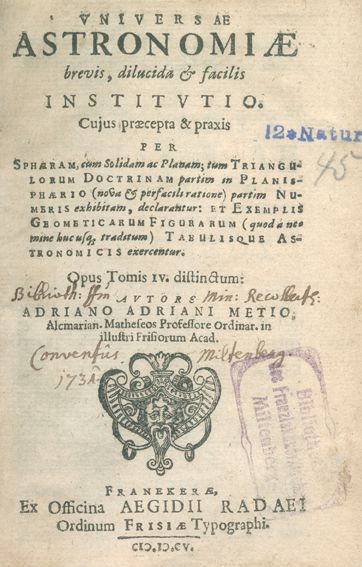 VNIVERSAE
ASTRONOMIÆ
brevis, dilucida & facilis
INSTITVTIO.
Cujus præcepta & praxis
PER
SPHÆRAM, cùm Solidam ac Planam; tum TRIANGU-
LORUM DOCTRINAM partim in PLANIS-
PHÆRIO (nova & perfacili ratione) partim NU-
MERIS exhibitam, declarantur: ET EXEMPLIS
GEOMETICARUM FIGURARUM (quod à ne-
mine huc usq; traditum) TABULISQUE AS-
TRONOMICIS exercentur.
12° Natur
45
Opus Tomis IV. distinctum:
Biblioth: ffrū Min: Recollect:
AVTORE
ADRIANO ADRIANI METIO,
Alcmarian. Matheseos Professore Ordinar. in
illustri Frisiorum Acad.
Conventûs Miltenberg.
Bibliothek
Miltenberg
FRANEKERÆ,
Ex Officina AEGIDII RADAEI
Ordinum FRISIÆ Typographi.
CIↃ.IↃ.CV.